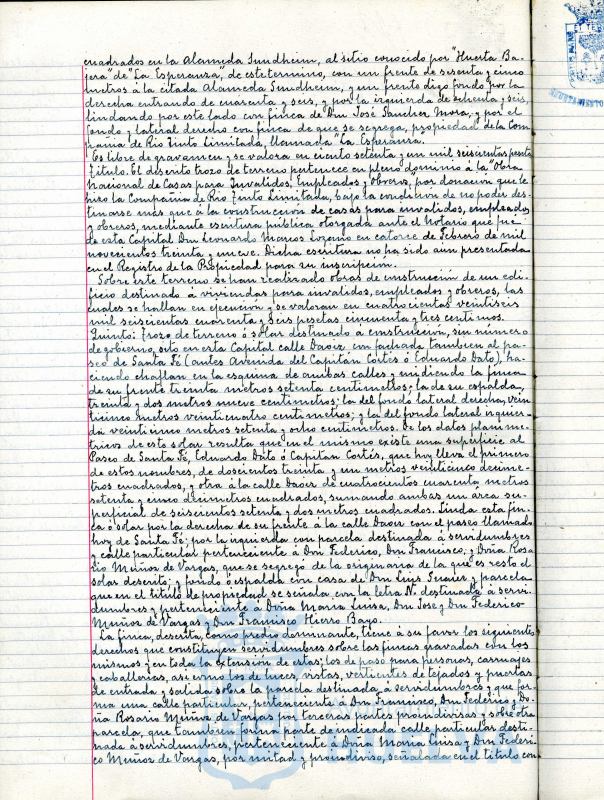 cuadrados en la Alameda Sundheim, al sitio conocido por "Huerta Ba-
jera" de "La Esperanza", de este termino, con un frente de sesenta y cinco
metros á la citada Alameda Sundheim, y un frente digo fondo por la
derecha entrando de cuarenta y seis, y por la izquierda de ochenta y seis,
lindando por este lado con finca de Don José Sanchez Mora, y por el
fondo y lateral derecho con finca de que se segrega, propiedad de la Com-
pañia de Rio Tinto Limitada, llamada "La Esperanza.
Es libre de gravamen y se valora en ciento setenta y un mil seiscientas pesetas
Titulo. El descrito trozo de terreno pertenece en pleno dominio á la "Obra
Nacional de Casas para Invalidos, Empleados y Obreros, por donación que le
hizo la Compañia de Rio Tinto Limitada, bajo la condición de no poder des-
tinarse más que á la construcción de casas para invalidos, empleados
y obreros, mediante escritura pública otorgada ante el Notario que fué
de esta Capital Don Leonardo Marcos Lozano en catorce de Febrero de mil
novecientos treinta y nueve. Dicha escritura no ha sido aun presentada
en el Registro de la Propiedad para su inscripción.
Sobre este terreno se han realizado obras de construcción de un edi-
ficio destinado á viviendas para invalidos, empleados y obreros, las
cuales se hallan en ejecución y se valoran en cuatrocientas veintiseis
mil seiscientas cuarenta y seis pesetas cincuenta y tres centimos.
Quinto: Trozo de terreno ó solar destinado á construcción, sin número
de gobierno, sito en esta Capital calle Daoiz con fachada tambien al pa-
seo de Santa Fé (antes Avenida del Capitán Cortés ó Eduardo Dato), ha-
ciendo chaflan en la esquina de ambas calles y midiendo la finca
de su frente treinta metros setenta centimetros; la de su espalda,
treinta y dos metros nueve centimetros; la del fondo lateral derecha, vein
ticinco metros veinticuatro centimetros; y la del fondo lateral izquier-
da veinticinco metros setenta y ocho centimetros. De los datos plani me-
tricos de este solar resulta que en el mismo existe una superficie al
Paseo de Santa Fé, Eduardo Dato ó Capitan Cortés, que hoy lleva el primero
de estos nombres, de doscientos treinta y un metros veinticinco decime-
tros cuadrados, y otra á la calle Daoiz de cuatrocientos cuarenta metros
setenta y cinco decimetros cuadrados, sumando ambas un area su-
perficial de seiscientos setenta y dos metros cuadrados. Linda esta fin-
ca ó solar por la derecha de su frente á la calle Daoiz con el paseo llamado
hoy de Santa Fé; por la izquierda con parcela destinada á servidumbres
y calle particular perteneciente á Don Federico, Don Francisco y Doña Rosa
rio Muñoz de Vargas, que se segregó de la originaria de la que es resto el
solar descrito; y fondo ó espalda con casa de Don Luis Suarez y parcela
que en el titulo de propiedad se señala con la letra N. destinada á servi-
dumbres y perteneciente á Doña Maria Luisa, Don Jose y Don Federico
Muñoz de Vargas y Don Francisco Hierro Bayo.
La finca descrita, como predio dominante, tiene á su favor los siguientes
derechos que constituyen servidumbres sobre las fincas gravadas con los
mismos y en toda la extensión de estas; los de paso para personas, carruajes
y caballerias, asi como los de luces, vistas, vertientes de tejados y puertas
de entrada y salida sobre la parcela destinada á servidumbres y que for-
ma una calle particular, perteneciente á Don Francisco, Don Federico y Do-
ña Rosario Muñoz de Vargas por terceras partes proindivisas y sobre otra
parcela, que tambien forma parte de indicada calle particular desti-
nada á servidumbres, perteneciente á Doña Maria Luisa y Don Federi-
co Muñoz de Vargas, por mitad y proindiviso, señalada en el titulo con